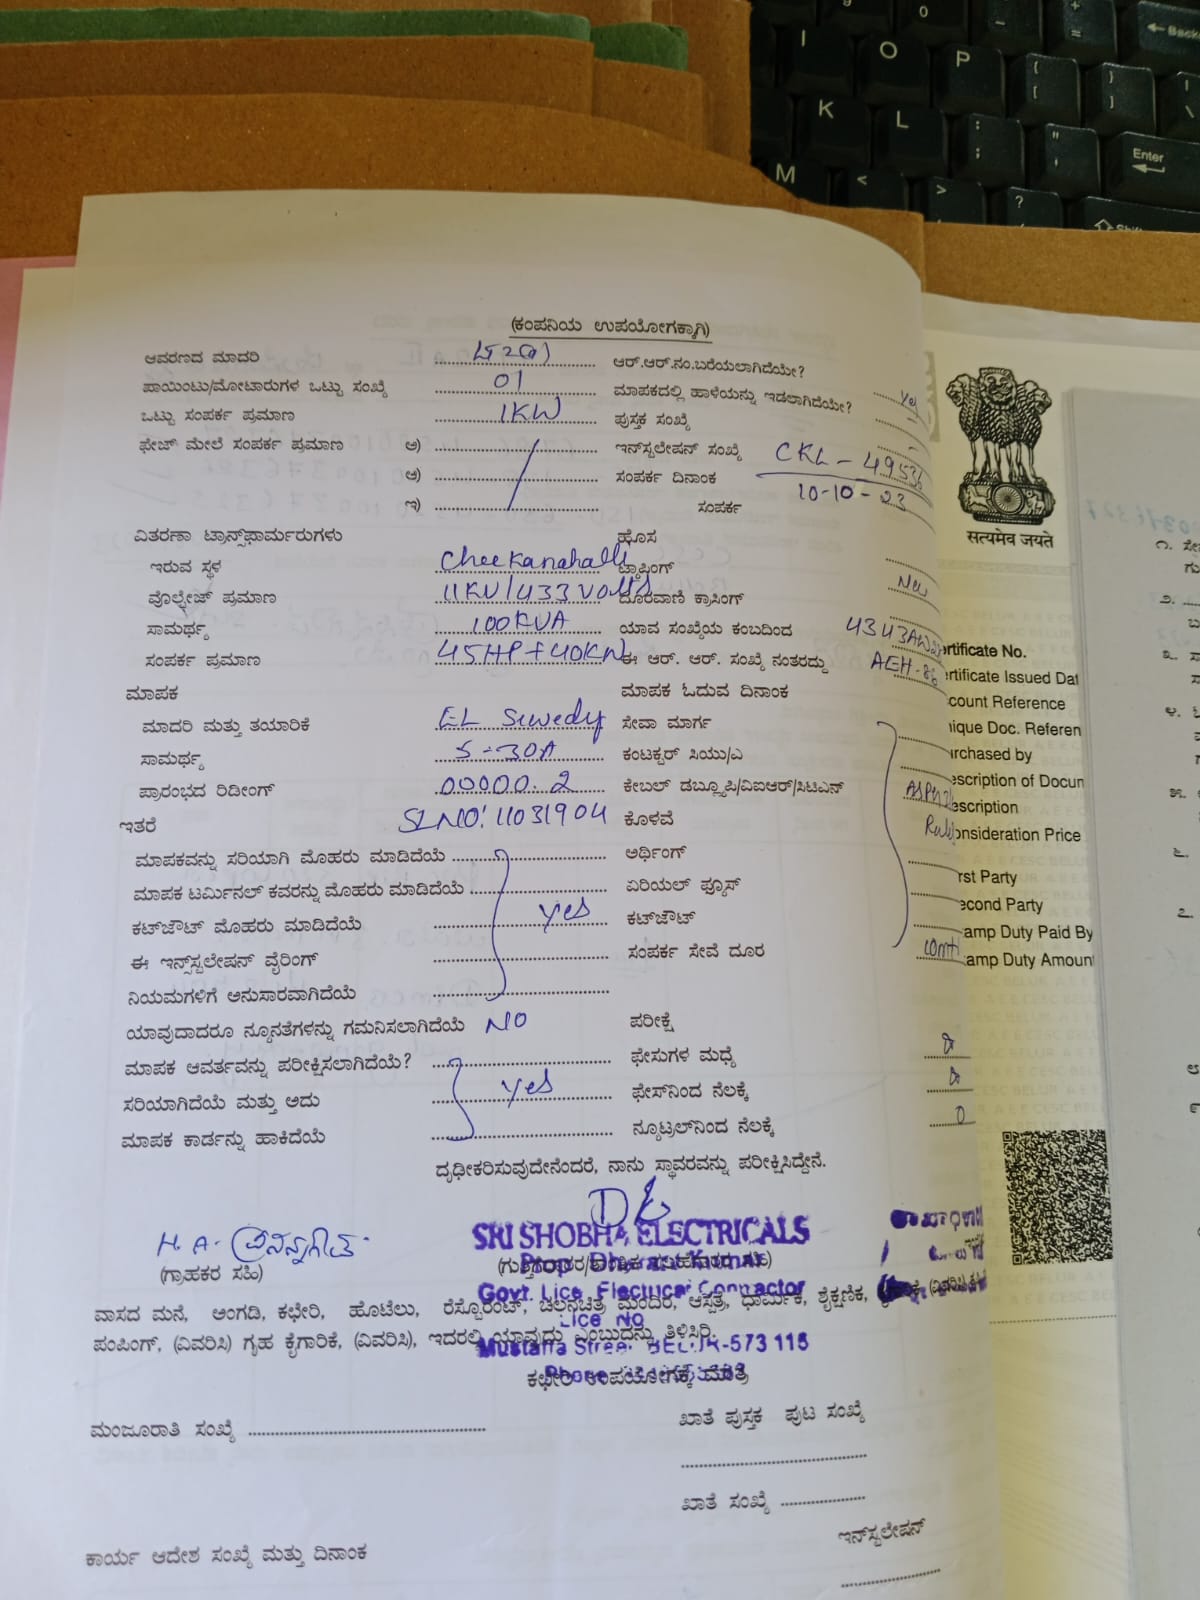 (ಕಂಪನಿಯ ಉಪಯೋಗಕ್ಕಾಗಿ)
ಆವರಣದ ಮಾದರಿ ........ ಆರ್.ಆರ್.ನಂ.ಬರೆಯಲಾಗಿದೆಯೇ?
ಪಾಯಿಂಟು/ಮೋಟಾರುಗಳ ಒಟ್ಟು ಸಂಖ್ಯೆ 01 ಮಾಪಕದಲ್ಲಿ ಹಾಳೆಯನ್ನು ಇಡಲಾಗಿದೆಯೇ? Yes
ಒಟ್ಟು ಸಂಪರ್ಕ ಪ್ರಮಾಣ 1KW ಪುಸ್ತಕ ಸಂಖ್ಯೆ
ಫೇಜ್ ಮೇಲೆ ಸಂಪರ್ಕ ಪ್ರಮಾಣ ಅ) ........ ಇನ್‌ಸ್ಟಲೇಷನ್ ಸಂಖ್ಯೆ CKL-49536
ಆ) ........ ಸಂಪರ್ಕ ದಿನಾಂಕ 10-10-23
ಇ) ........ ಸಂಪರ್ಕ
ವಿತರಣಾ ಟ್ರಾನ್ಸ್‌ಫಾರ್ಮರುಗಳು ಹೊಸ
ಇರುವ ಸ್ಥಳ Cheekanahalli ಟ್ಯಾಪಿಂಗ್
ವೊಲ್ಟೇಜ್ ಪ್ರಮಾಣ 11KV/433 Volts ದೂರವಾಣಿ ಕ್ರಾಸಿಂಗ್ New
ಸಾಮರ್ಥ್ಯ 100KVA ಯಾವ ಸಂಖ್ಯೆಯ ಕಂಬದಿಂದ
ಸಂಪರ್ಕ ಪ್ರಮಾಣ 45HP+40KW ಈ ಆರ್. ಆರ್. ಸಂಖ್ಯೆ ನಂತರದ್ದು AEH-86
ಮಾಪಕ ಮಾಪಕ ಓದುವ ದಿನಾಂಕ
ಮಾದರಿ ಮತ್ತು ತಯಾರಿಕೆ EL Swedy ಸೇವಾ ಮಾರ್ಗ
ಸಾಮರ್ಥ್ಯ 5-30A ಕಂಟಕ್ಟರ್ ಸಿಯು/ಎ
ಪ್ರಾರಂಭದ ರಿಡೀಂಗ್ 00000.2 ಕೇಬಲ್ ಡಬ್ಲ್ಯೂಪಿ/ವಿಐಆರ್/ಸಿಟಿಎನ್
ಇತರೆ SLNO: 11031904 ಕೊಳವೆ
ಮಾಪಕವನ್ನು ಸರಿಯಾಗಿ ಮೊಹರು ಮಾಡಿದೆಯೆ ........ ಅರ್ಥಿಂಗ್
ಮಾಪಕ ಟರ್ಮಿನಲ್ ಕವರನ್ನು ಮೊಹರು ಮಾಡಿದೆಯೆ ........ ಏರಿಯಲ್ ಫ್ಯೂಸ್
ಕಟ್‌ಔಟ್ ಮೊಹರು ಮಾಡಿದೆಯೆ Yes ಕಟ್‌ಔಟ್
ಈ ಇನ್ಸ್‌ಸ್ಟಲೇಷನ್ ವೈರಿಂಗ್ ........ ಸಂಪರ್ಕ ಸೇವೆ ದೂರ
ನಿಯಮಗಳಿಗೆ ಅನುಸಾರವಾಗಿದೆಯೆ ........
ಯಾವುದಾದರೂ ನ್ಯೂನತೆಗಳನ್ನು ಗಮನಿಸಲಾಗಿದೆಯೆ NO ಪರೀಕ್ಷೆ
ಮಾಪಕ ಆವರ್ತವನ್ನು ಪರೀಕ್ಷಿಸಲಾಗಿದೆಯೆ? ........ ಫೇಸುಗಳ ಮಧ್ಯೆ
ಸರಿಯಾಗಿದೆಯೆ ಮತ್ತು ಅದು Yes ಫೇಸ್‌ನಿಂದ ನೆಲಕ್ಕೆ
ಮಾಪಕ ಕಾರ್ಡನ್ನು ಹಾಕಿದೆಯೆ ........ ನ್ಯೂಟ್ರಲ್‌ನಿಂದ ನೆಲಕ್ಕೆ 0
ದೃಢೀಕರಿಸುವುದೇನೆಂದರೆ, ನಾನು ಸ್ಥಾವರವನ್ನು ಪರೀಕ್ಷಿಸಿದ್ದೇನೆ.
H.A.
SRI SHOBHA ELECTRICALS
(ಗ್ರಾಹಕರ ಸಹಿ)
Prop: Dharani Kumar
Govt. Lice. Electrical Contractor
ವಾಸದ ಮನೆ, ಅಂಗಡಿ, ಕಛೇರಿ, ಹೊಟೆಲು, ರೆಸ್ಟೊರೆಂಟ್, ಚಲನಚಿತ್ರ ಮಂದಿರ, ಆಸ್ಪತ್ರೆ, ಧಾರ್ಮಿಕ, ಶೈಕ್ಷಣಿಕ, (ವಿವರಿಸಿ)
Lice No
ಪಂಪಿಂಗ್, (ವಿವರಿಸಿ) ಗೃಹ ಕೈಗಾರಿಕೆ, (ವಿವರಿಸಿ), ಇದರಲ್ಲಿ ಯಾವುದು ಎಂಬುದನ್ನು ತಿಳಿಸಿರಿ.
Mustaffa Street BELUR-573 115
Phone
ಕಛೇರಿ ಉಪಯೋಗಕ್ಕೆ ಮಾತ್ರ
ಮಂಜೂರಾತಿ ಸಂಖ್ಯೆ ........ ಖಾತೆ ಪುಸ್ತಕ ಪುಟ ಸಂಖ್ಯೆ
ಖಾತೆ ಸಂಖ್ಯೆ ........
ಇನ್‌ಸ್ಟಲೇಷನ್
ಕಾರ್ಯ ಆದೇಶ ಸಂಖ್ಯೆ ಮತ್ತು ದಿನಾಂಕ
सत्यमेव जयते
rtificate No.
rtificate Issued Dat
count Reference
ique Doc. Referen
rchased by
escription of Docun
escription
onsideration Price
rst Party
econd Party
amp Duty Paid By
amp Duty Amoun
I O P
K L
M
Enter